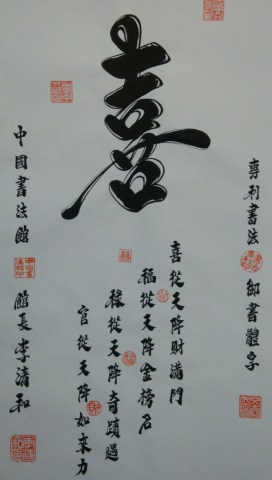 喜
專利書法
御書體字
喜從天降財滿門
福從天降金榜名
祿從天降奇蹟過
官從天降如來力
中國書法館
館長李清和